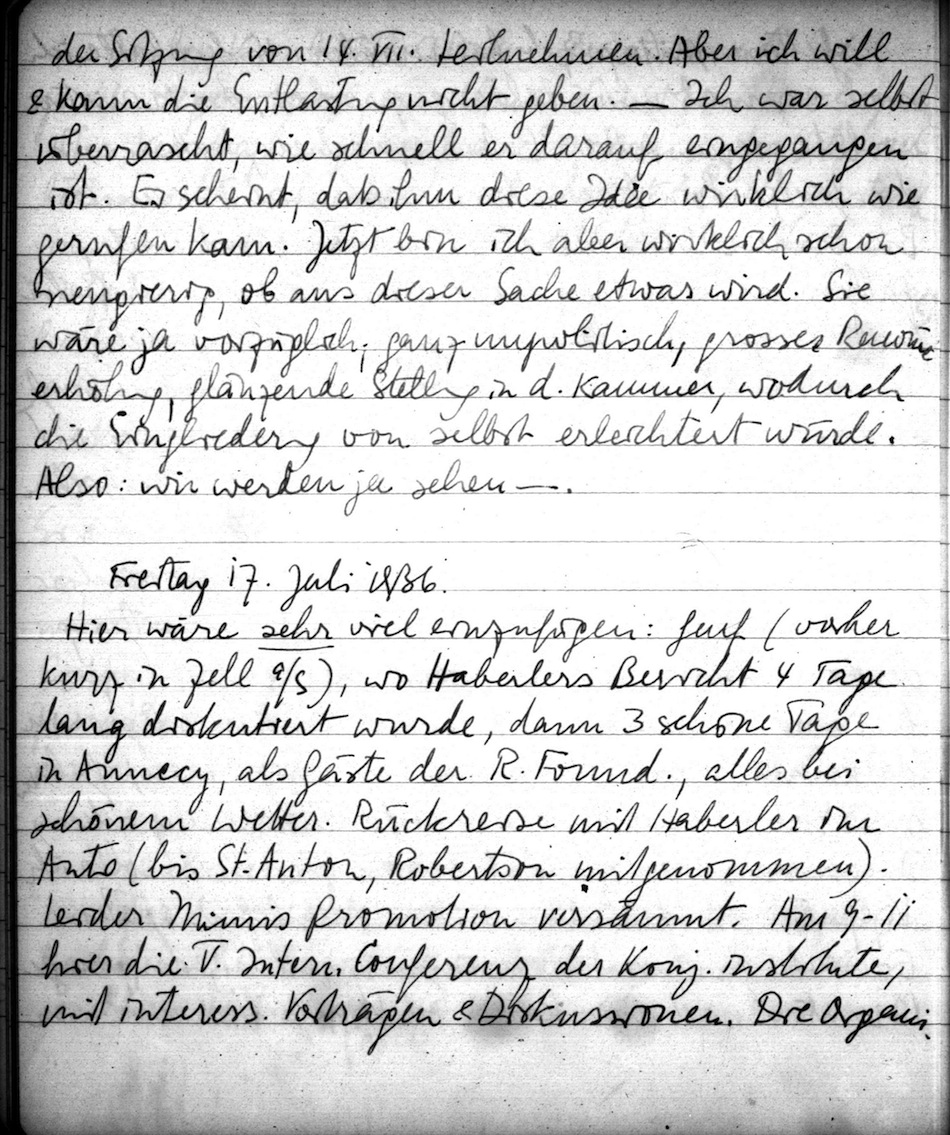 der Sitzung von 14. VII. teilnehmen. Aber ich will
& kann die Entlastung nicht geben. — Ich war selbst
überrascht, wie schnell er darauf eingegangen
ist. Es scheint, dass ihm diese Idee wirklich wie
gerufen kam. Jetzt bin ich aber wirklich schon
neugierig, ob aus dieser Sache etwas wird. Sie
wäre ja vorzüglich; ganz unpolitisch, grosse
erhöhg, glänzende Stellg in d. Kammer, wodurch
die Eingliederg von selbst erleichtert würde.
Also: wir werden ja sehen —.
Freitag 17. Juli 1936.
Hier wäre sehr viel einzufügen: Genf (vorher
kurz in Zell a/S), wo Haberlers Bericht 4 Tage
lang diskutiert wurde, dann 3 schöne Tage
in Annecy, als Gäste der R. Found., alles bei
schönem Wetter. Rückreise mit Haberler im
Auto (bis St. Anton, Robertson mitgenommen).
Leider Mimis Promotion versäumt. Am 9-11
hier die V. Intern. Conferenz der Konj. institute,
mit interess. Vorträgen & Diskussionen. Die Organi-